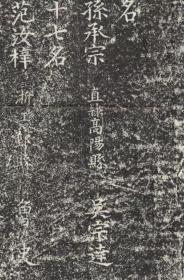 名
孫承宗 直隸高陽縣 吳宗達
十七名
范汝梓 浙江 縣 魯史